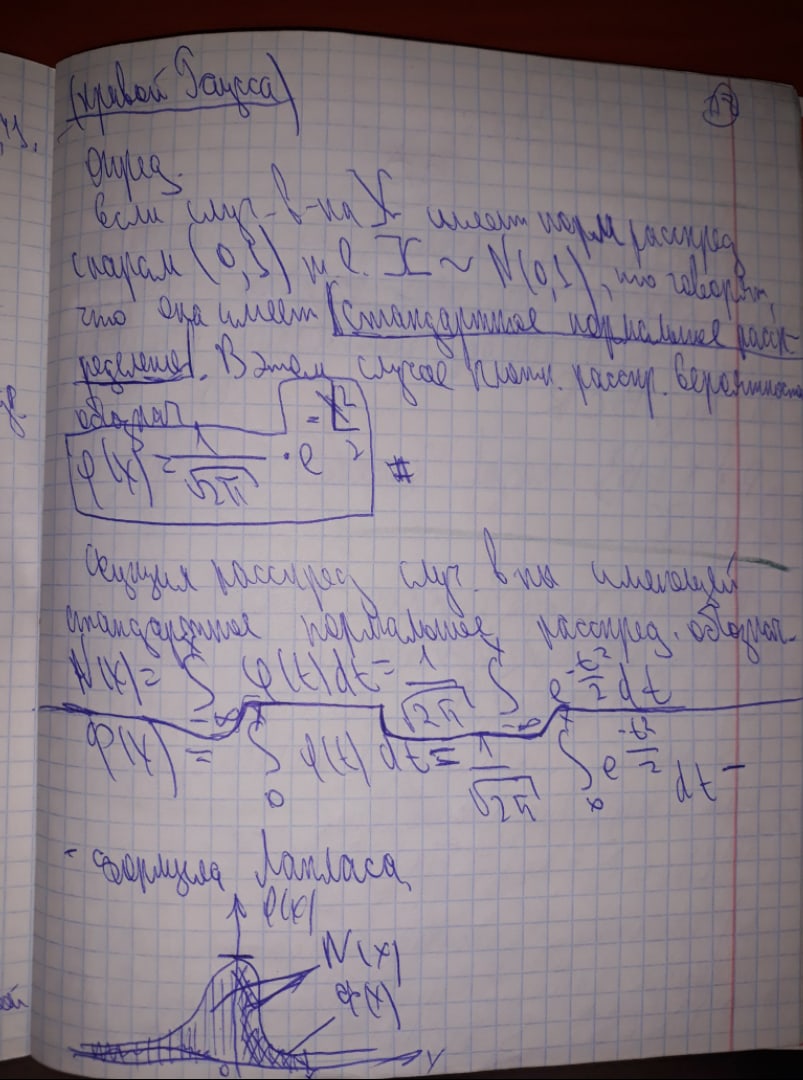 (кривой Гаусса)
17
опред.
Если случ-в-на X имеет норм распред
с парам (0,1) т.е. X ~ N(0,1), то говорят,
что она имеет стандартное нормальное расп-
ределение. В этом случае плотн. распр. вероятности
обознач.
φ(x) = 1/√2π · e^(-x²/2) #
Функция распред случ. в-ны имеющей
стандартное нормальное распред. обознач.
N(x) = ∫_{-∞}^{x} φ(t)dt = 1/√2π ∫_{-∞}^{x} e^(-t²/2) dt
Ф(x) = ∫_0^x φ(t) dt = 1/√2π ∫_0^x e^(-t²/2) dt –
- Формула Лапласа
φ(x)
N(x)
Ф(x)
0